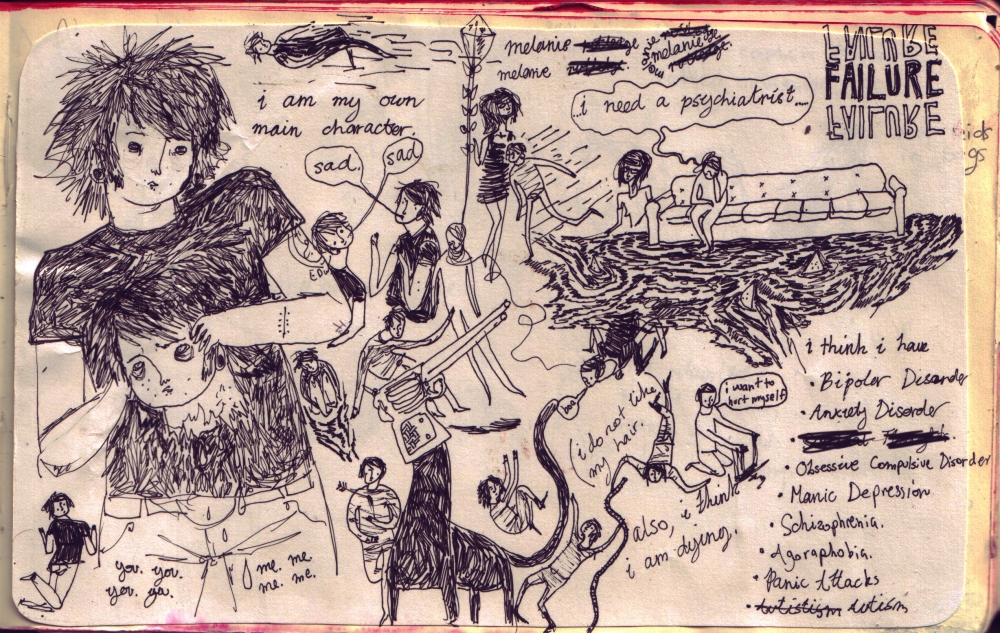 i am my own
main character.
melanie
melanie
melanie
FAILURE
FAILURE
FAILURE
...i need a psychiatrist....
sad.
sad
i think i have
• Bipolar Disorder
• Anxiety Disorder
• Obsessive Compulsive Disorder
• Manic Depression
• Schizophrenia.
• Agoraphobia.
• Panic Attacks
• Autistism Autism
i want to
hurt myself
i do not like
my hair.
also, i think
i am dying.
you. you.
you. you.
me. me.
me. me.